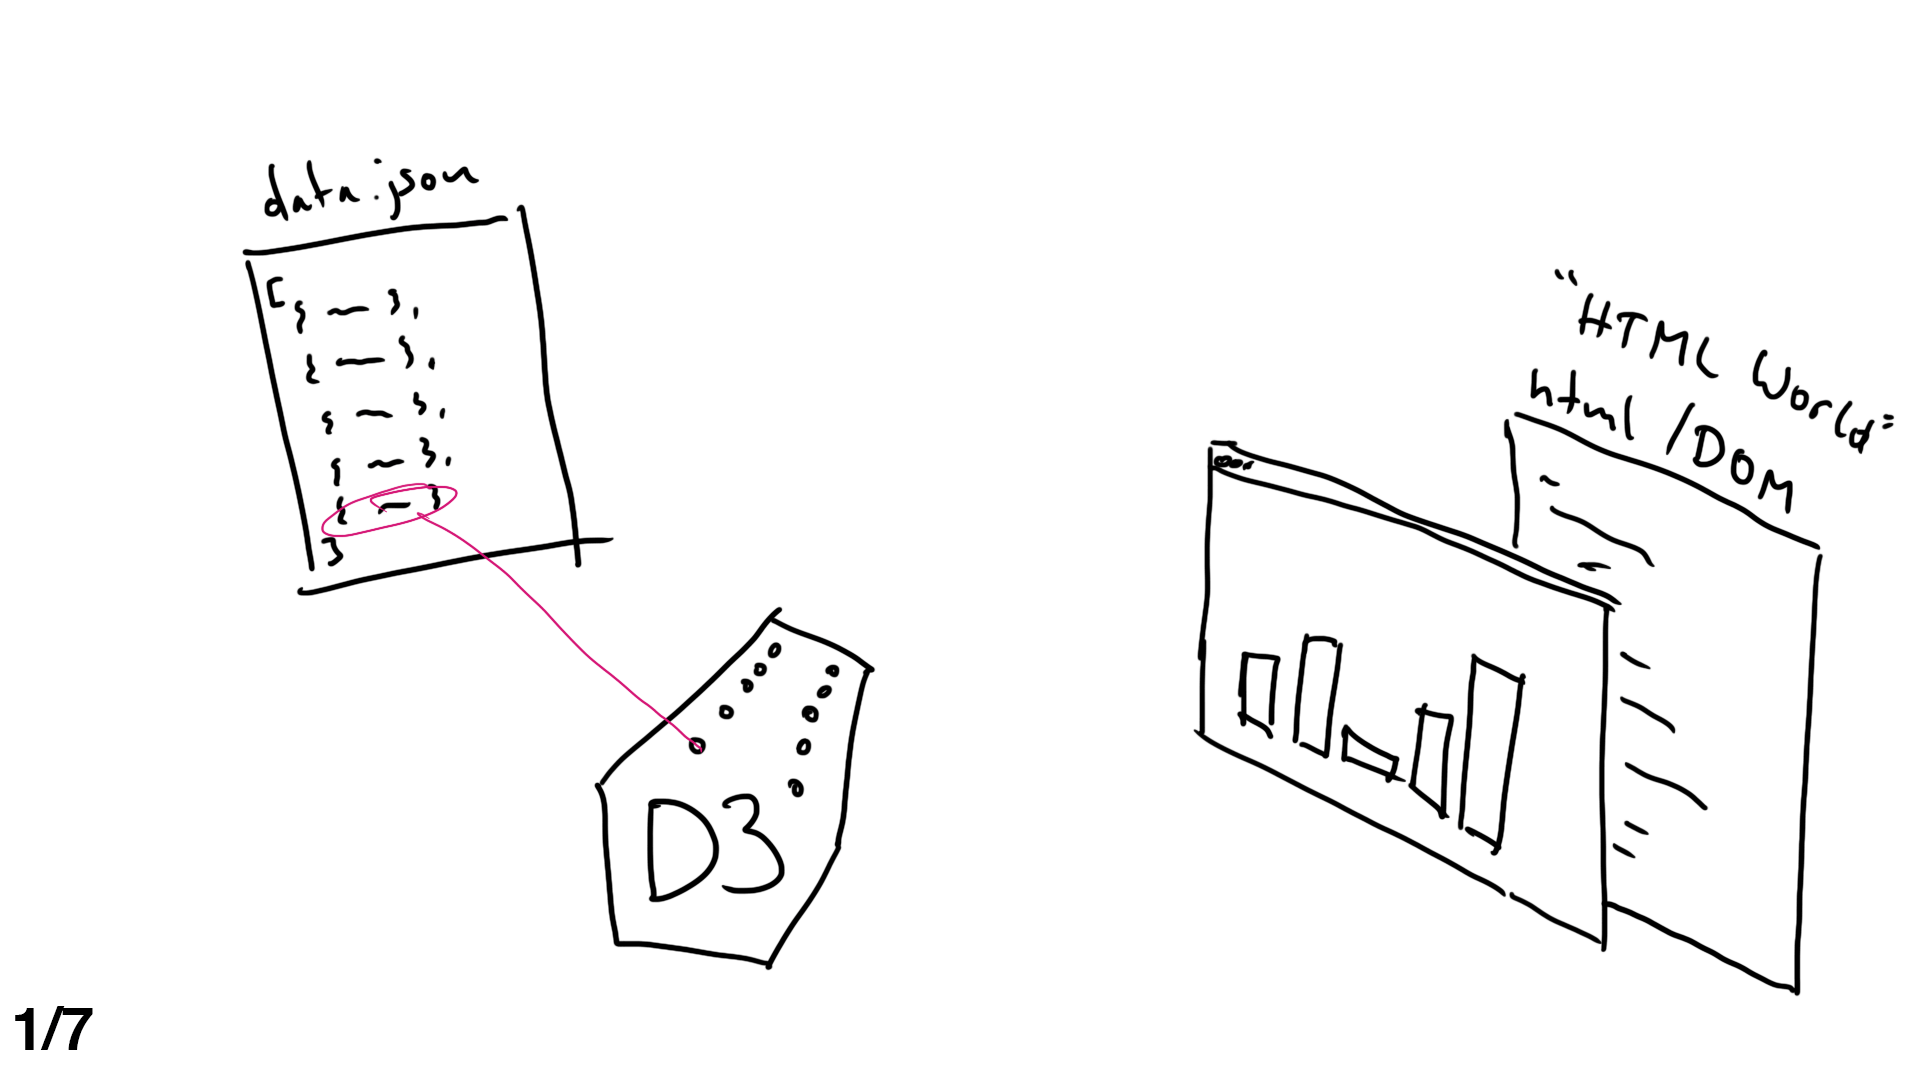 data.json
[{ — },
{ — },
{ — },
{ — },
{ — }
]
D3
"HTML World"
html / DOM
1/7